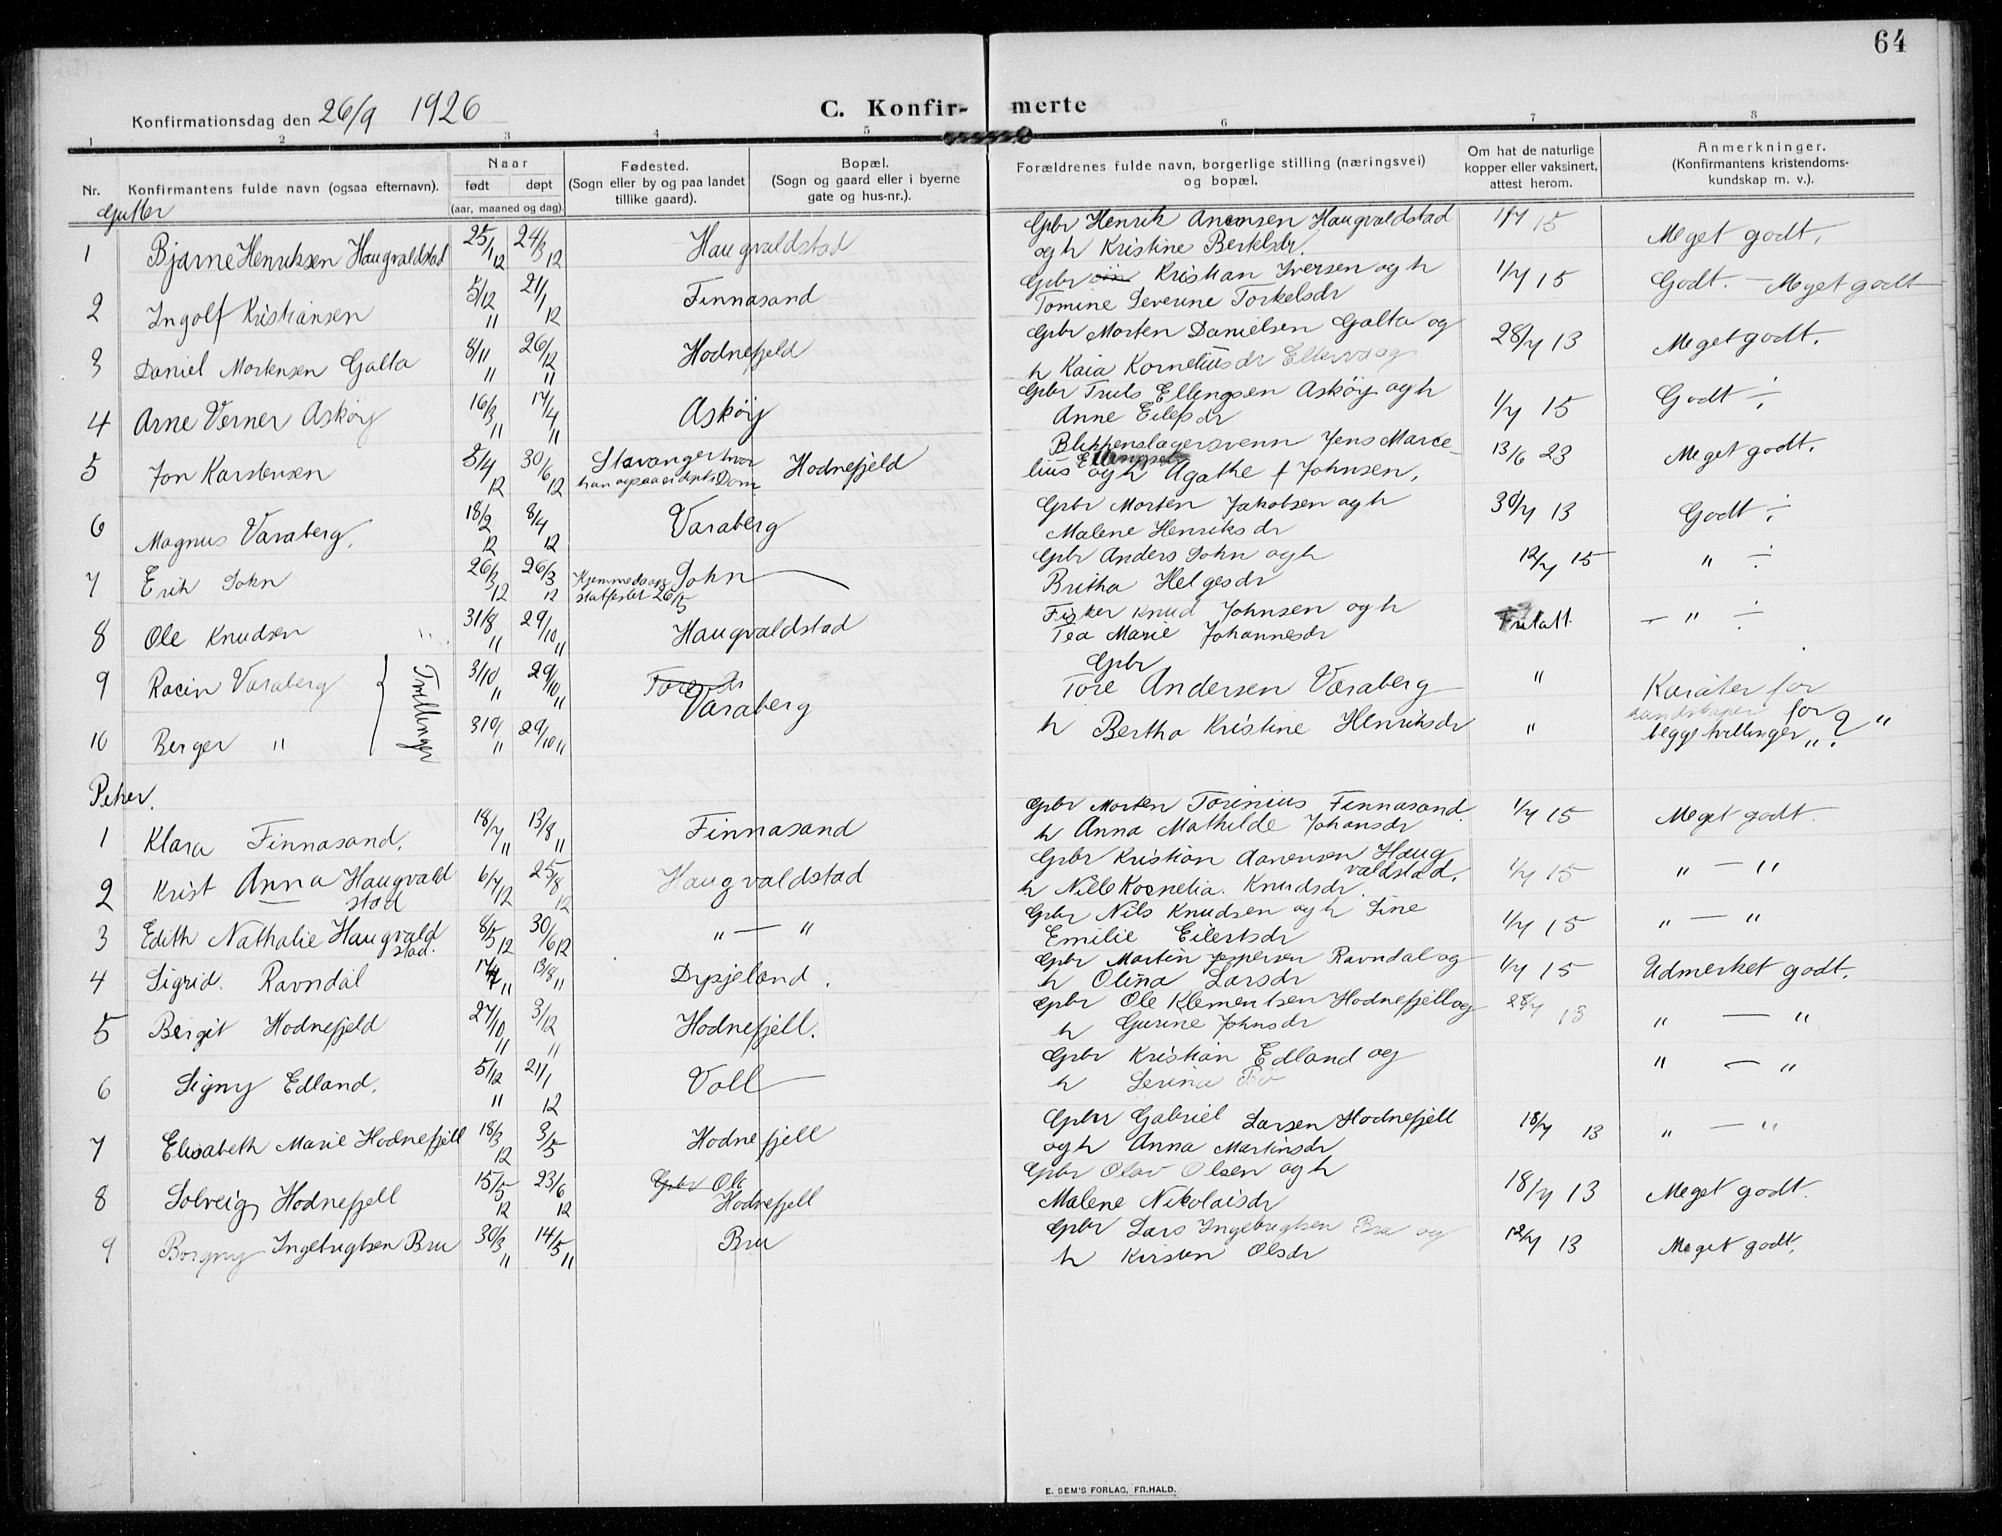 64
Konfirmationsdag den 26/9 1926
C. Konfir- merte
1 2 3 4 5 6 7 8
Nr. Konfirmantens fulde navn (ogsaa efternavn).
Naar
født døpt
(aar, maaned og dag).
Fødested.
(Sogn eller by og paa landet
tillike gaard).
Bopæl.
(Sogn og gaard eller i byerne
gate og hus-nr.).
Forældrenes fulde navn, borgerlige stilling (næringsvei)
og bopæl.
Om hat de naturlige
kopper eller vaksinert,
attest herom.
Anmerkninger.
(Konfirmantens kristendoms-
kundskap m. v.).
Gutter
1 Bjarne Henriksen Haugvaldstad 25/1 12 24/3 12 Haugvaldstad Gbr Henrik Haugvaldstad 15 Meget godt.
og h Kristine Bertelsdr.
2 Ingolf Kristiansen 5/12 11 21/1 12 Finnasand Gbr Kristian Iversen og h 1/7 15 Godt. - Meget godt
Tomine Severine Torkelsdr
3 Daniel Mortensen Galta 8/11 11 26/12 11 Hodnefjeld Gbr Morten Danielsen Galta og 28/7 13 Meget godt.
h Kaia Korneliusdr Eltervaag
4 Arne Verner Asköy 16/3 11 17/4 11 Asköy Gbr Truls Ellingsen Asköy og h 1/7 15 Godt ÷
Anne Eilefsdr
5 Jon Karstensen 8/4 12 30/6 12 Stavanger hvor Hodnefjeld Blikkenslagersvenn Jens Marce- 13/6 23 Meget godt.
han ogsaa er døpt i Dom
lius og h Agathe f Johnsen,
6 Magnus Varaberg. 18/2 12 8/4 12 Varaberg Gbr Morten Jakobsen og h 30/7 13 Godt ÷
Malene Henriksdr
7 Erik Sokn 26/3 12 26/3 12 Hjemmedaap Sokn Gbr Anders Sokn og h 12/7 15 " ÷
statfestet 26/5
Britha Helgesdr
8 Ole Knudsen 31/8 11 29/10 11 Haugvaldstad Fisker Knud Johnsen og h Fritatt - " ÷
Tea Marie Johannesdr
9 Racin Varaberg Tvillinger 3/10 11 29/10 11 Varaberg Gbr "
Tore Andersen Varaberg Karakter for
10 Berger " 3/10 11 29/10 11 h Bertha Kristine Henriksdr " kundskaper for
begge tvillinger " ? "
Piker.
1 Klara Finnasand. 18/7 11 13/8 11 Finnasand Gbr Morten Torinius Finnasand. 1/7 15 Meget godt.
h Anna Mathilde Johansdr
2 Krist Anna Haugvald 6/7 12 25/8 12 Haugvaldstad Gbr Kristian Haug 1/7 15 " - "
stad
valdstad,
h Nille Kornelia. Knudsdr
3 Edith Nathalie Haugvald 8/5 12 30/6 12 " - " Gbr Nils Knudsen og h Sine 1/7 15 " - "
stad.
Emilie Eilertsdr
4 Sigrid. Ravndal 11 13/8 11 Dysjeland. Gbr Martin Ravndal og 1/7 15 Udmerket godt.
h Olina Larsdr
5 Bergit Hodnefjeld 27/10 11 3/12 11 Hodnefjell. Gbr Ole Klementsen Hodnefjell og 28/7 13 " - "
h Gurine Johnsdr
6 Signy Edland. 5/12 11 21/1 12 Voll Gbr Kristian Edland og " - "
h Serina Bö
7 Elisabeth Marie Hodnefjell 18/3 12 3/5 Hodnefjell Gbr Gabriel Larsen Hodnefjell 18/7 13 " - "
og h Anna Martinsdr
8 Solveig Hodnefjell 15/5 12 23/6 12 Gbr Ole Gbr Olav Olsen og h 18/7 13 Meget godt.
Hodnefjell
Malene Nikolaisdr
9 Borgny Ingebrigtsen Bru 30/3 11 14/5 11 Bru Gbr Lars Ingebrigtsen Bru og 12/7 13 Meget godt.
h Kirsten Olsdr
E. SEM'S FORLAG, FR.HALD.